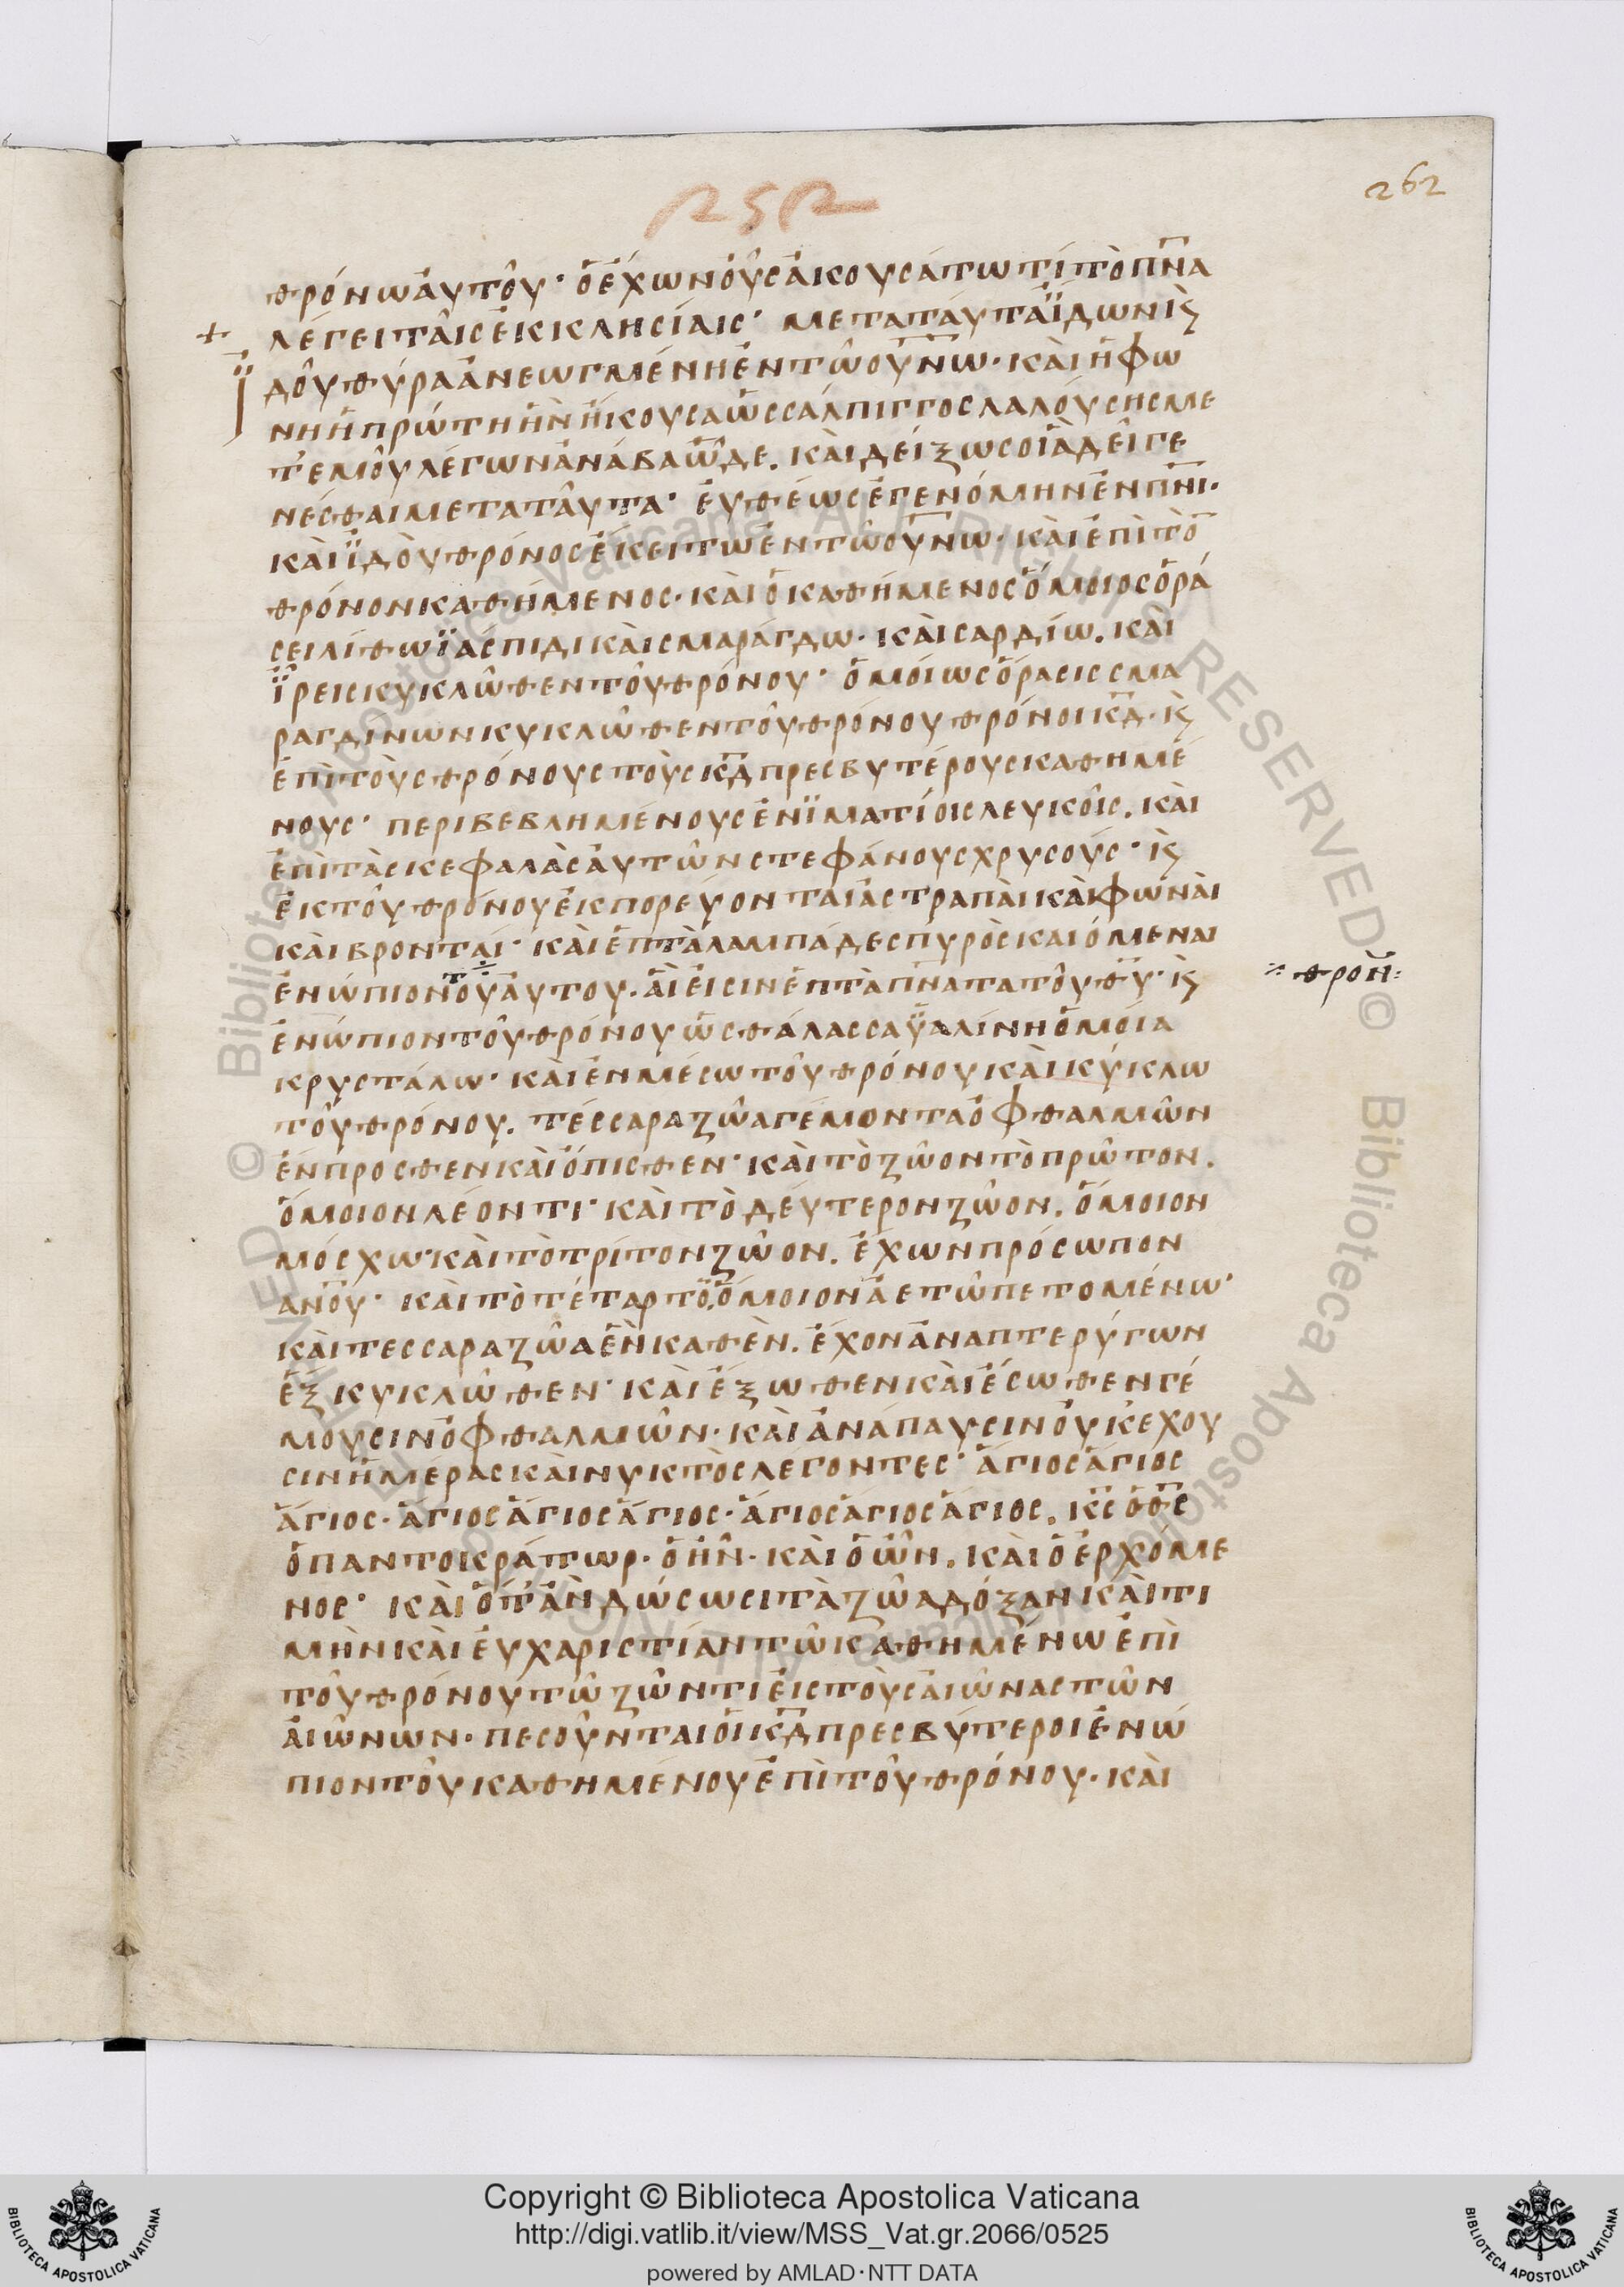 252
262
θρόνω ἀυτοῦ· ὁ ἔχων οὖς ἀκουσάτω τί τὸ πν̅α
λέγει ταῖς ἐκκλησίαις· μετα ταύτα ϊδων κ̀ς
+
ϊδοὺ θύρα ἀνεωγμένη ἐν τῶ ουν̅ω· καὶ ἡ φω
νὴ ἡ πρώτη ἣν ἤκουσα ὡς σάλπιγγος λαλούσης με
τ' εμοῦ λέγων ἀνάβα ὧδε. καὶ δείξω σοι ἃ δεῖ γε
νέσθαι μετα ταῦτα· ἐυθέως ἐγενόμην ἐν πν̅ι·
καὶ ϊδοὺ θρόνος ἔκειτω ἐν τῶ ουν̅ω· καὶ ἐπὶ τὸ̅
θρόνον καθήμενος· καὶ ὁ καθήμενος ὅμοιος ὁρά
σει λίθω ϊάσπιδι καὶ σμαράγδω· καὶ σαρδίω. καὶ
ϊρεις κυκλῶθεν τοῦ θρόνου· ὁμοίως ὅρασις σμα
ραγδινων κυκλῶθεν τοῦ θρόνου θρόνοι κ̅δ̅· κ̀ς
ἐπὶ τοὺς θρόνους τοὺς κ̅δ̅ πρεσβυτέρους καθημέ
νους· περιβεβλημένους ἐν ϊματίοις λευκοῖς. καὶ
ἐπὶ τὰς κεφαλὰς ἀυτῶν στεφάνους χρυσούς· κ̀ς
ἐκ τοῦ θρόνου ἐκπορεύονται ἀστραπὰι κὰι φωνὰι
καὶ βρονταί· καὶ ἑπτὰ λαμπάδες πυρὸς καιόμεναι
ἐνώπιον τοῦ ἀυτου· ἅι ἐισιν ἑπτὰ πν̅ατα τοῦ θ̅υ̅· κ̀ς
⁜ θρον̅:
ἐνώπιον τοῦ θρόνου ὡς θάλασσα ϋαλίνη ὁμοία
κρυστάλω· καὶ ἐν μέσω τοῦ θρόνου καὶ κύκλω
τοῦ θρόνου. τέσσαρα ζῶα γέμοντα ὀφθαλμῶν
ἔνπροσθεν καὶ ὄπισθεν· καὶ τὸ ζῶον τὸ πρῶτον.
ὅμοιον λέοντι· καὶ τὸ δέυτερον ζῶον. ὅμοιον
μόσχω· καὶ τὸ τρίτον ζῶον. ἔχων πρόσωπον
αν̅ου· καὶ τὸ τέταρτο̅. ὅμοιον ἀετῶ πετομένω·
καὶ τεσσαρα ζῶα ἓν καθ ὲν. ἔχον ἀνα πτερύγων
ἓξ κυκλῶθεν· καὶ ἔξωθεν καὶ ἔσωθεν γέ
μουσιν ὀφθαλμῶν· καὶ ἀνάπαυσιν ὀυκ ἔχου
σιν ἡμέρας καὶ νυκτὸς λεγοντες· ἅγιος ἅγιος
ἅγιος· ἅγιος ἅγιος ἅγιος· ἅγιος ἅγιος ἅγιος. κ̅ς̅ ὁ θ̅ς̅
ὁ παντοκράτωρ· ὁ ἦν· καὶ ὁ ὢν. καὶ ὁ ἐρχόμε
νος· καὶ ὅτ' ἂν δώσωσι τὰ ζῶα δόξαν καὶ τι
μὴν καὶ ἐυχαριστίαν τῶ καθημένω ἐπὶ
τοῦ θρόνου τῶ ζῶντι ἐις τοὺς ἀιῶνας τῶν
ἀιώνων· πεσοῦνται οἱ κ̅δ̅ πρεσβύτεροι ἐνώ
πιον τοῦ καθημένου ἐπὶ τοῦ θρόνου· καὶ
Copyright © Biblioteca Apostolica Vaticana
http://digi.vatlib.it/view/MSS_Vat.gr.2066/0525
powered by AMLAD·NTT DATA
BIBLIOTECA APOSTOLICA VATICANA
BIBLIOTECA APOSTOLICA VATICANA